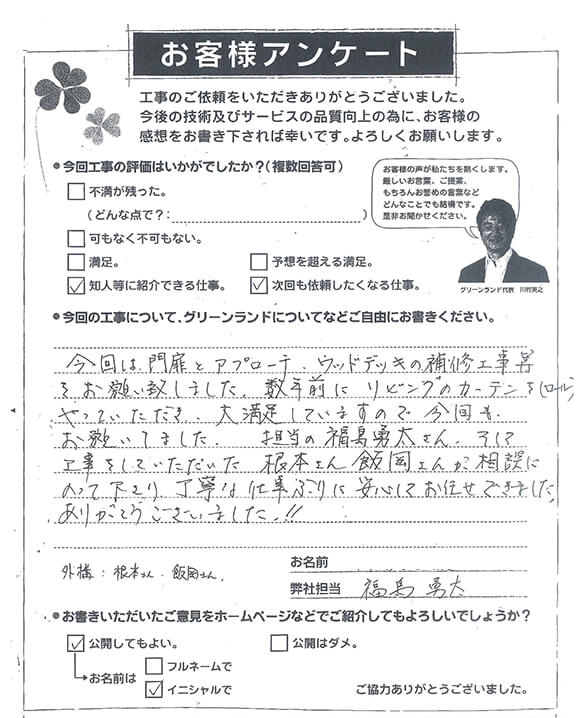 お客様アンケート
工事のご依頼をいただきありがとうございました。
今後の技術及びサービスの品質向上の為に、お客様の
感想をお書き下されば幸いです。よろしくお願いします。
●今回工事の評価はいかがでしたか?(複数回答可)
不満が残った。
(どんな点で?:)
可もなく不可もない。
満足。
予想を超える満足。
知人等に紹介できる仕事。
次回も依頼したくなる仕事。
お客様の声が私たちを熱くします。
厳しいお言葉、ご提案、
もちろんお誉めの言葉など
どんなことでも結構です。
是非お聞かせください。
グリーンランド代表 川村英之
●今回の工事について、グリーンランドについてなどご自由にお書きください。
今回は門扉とアプローチ、ウッドデッキの補修工事等
をお願い致しました。数年前にリビングのカーテンを(ロール)
やっていただき、大満足していますので今回も
お願いしました。担当の福島勇太さん、そして
工事をしていただいた根本さん飯岡さんが相談に
のって下さり丁寧な仕事ぶりに安心してお任せできました。
ありがとうございました。!!
外構:根本さん・飯岡さん.
お名前
弊社担当 福島 勇太
●お書きいただいたご意見をホームページなどでご紹介してもよろしいでしょうか?
公開してもよい。
公開はダメ。
お名前は
フルネームで
イニシャルで
ご協力ありがとうございました。